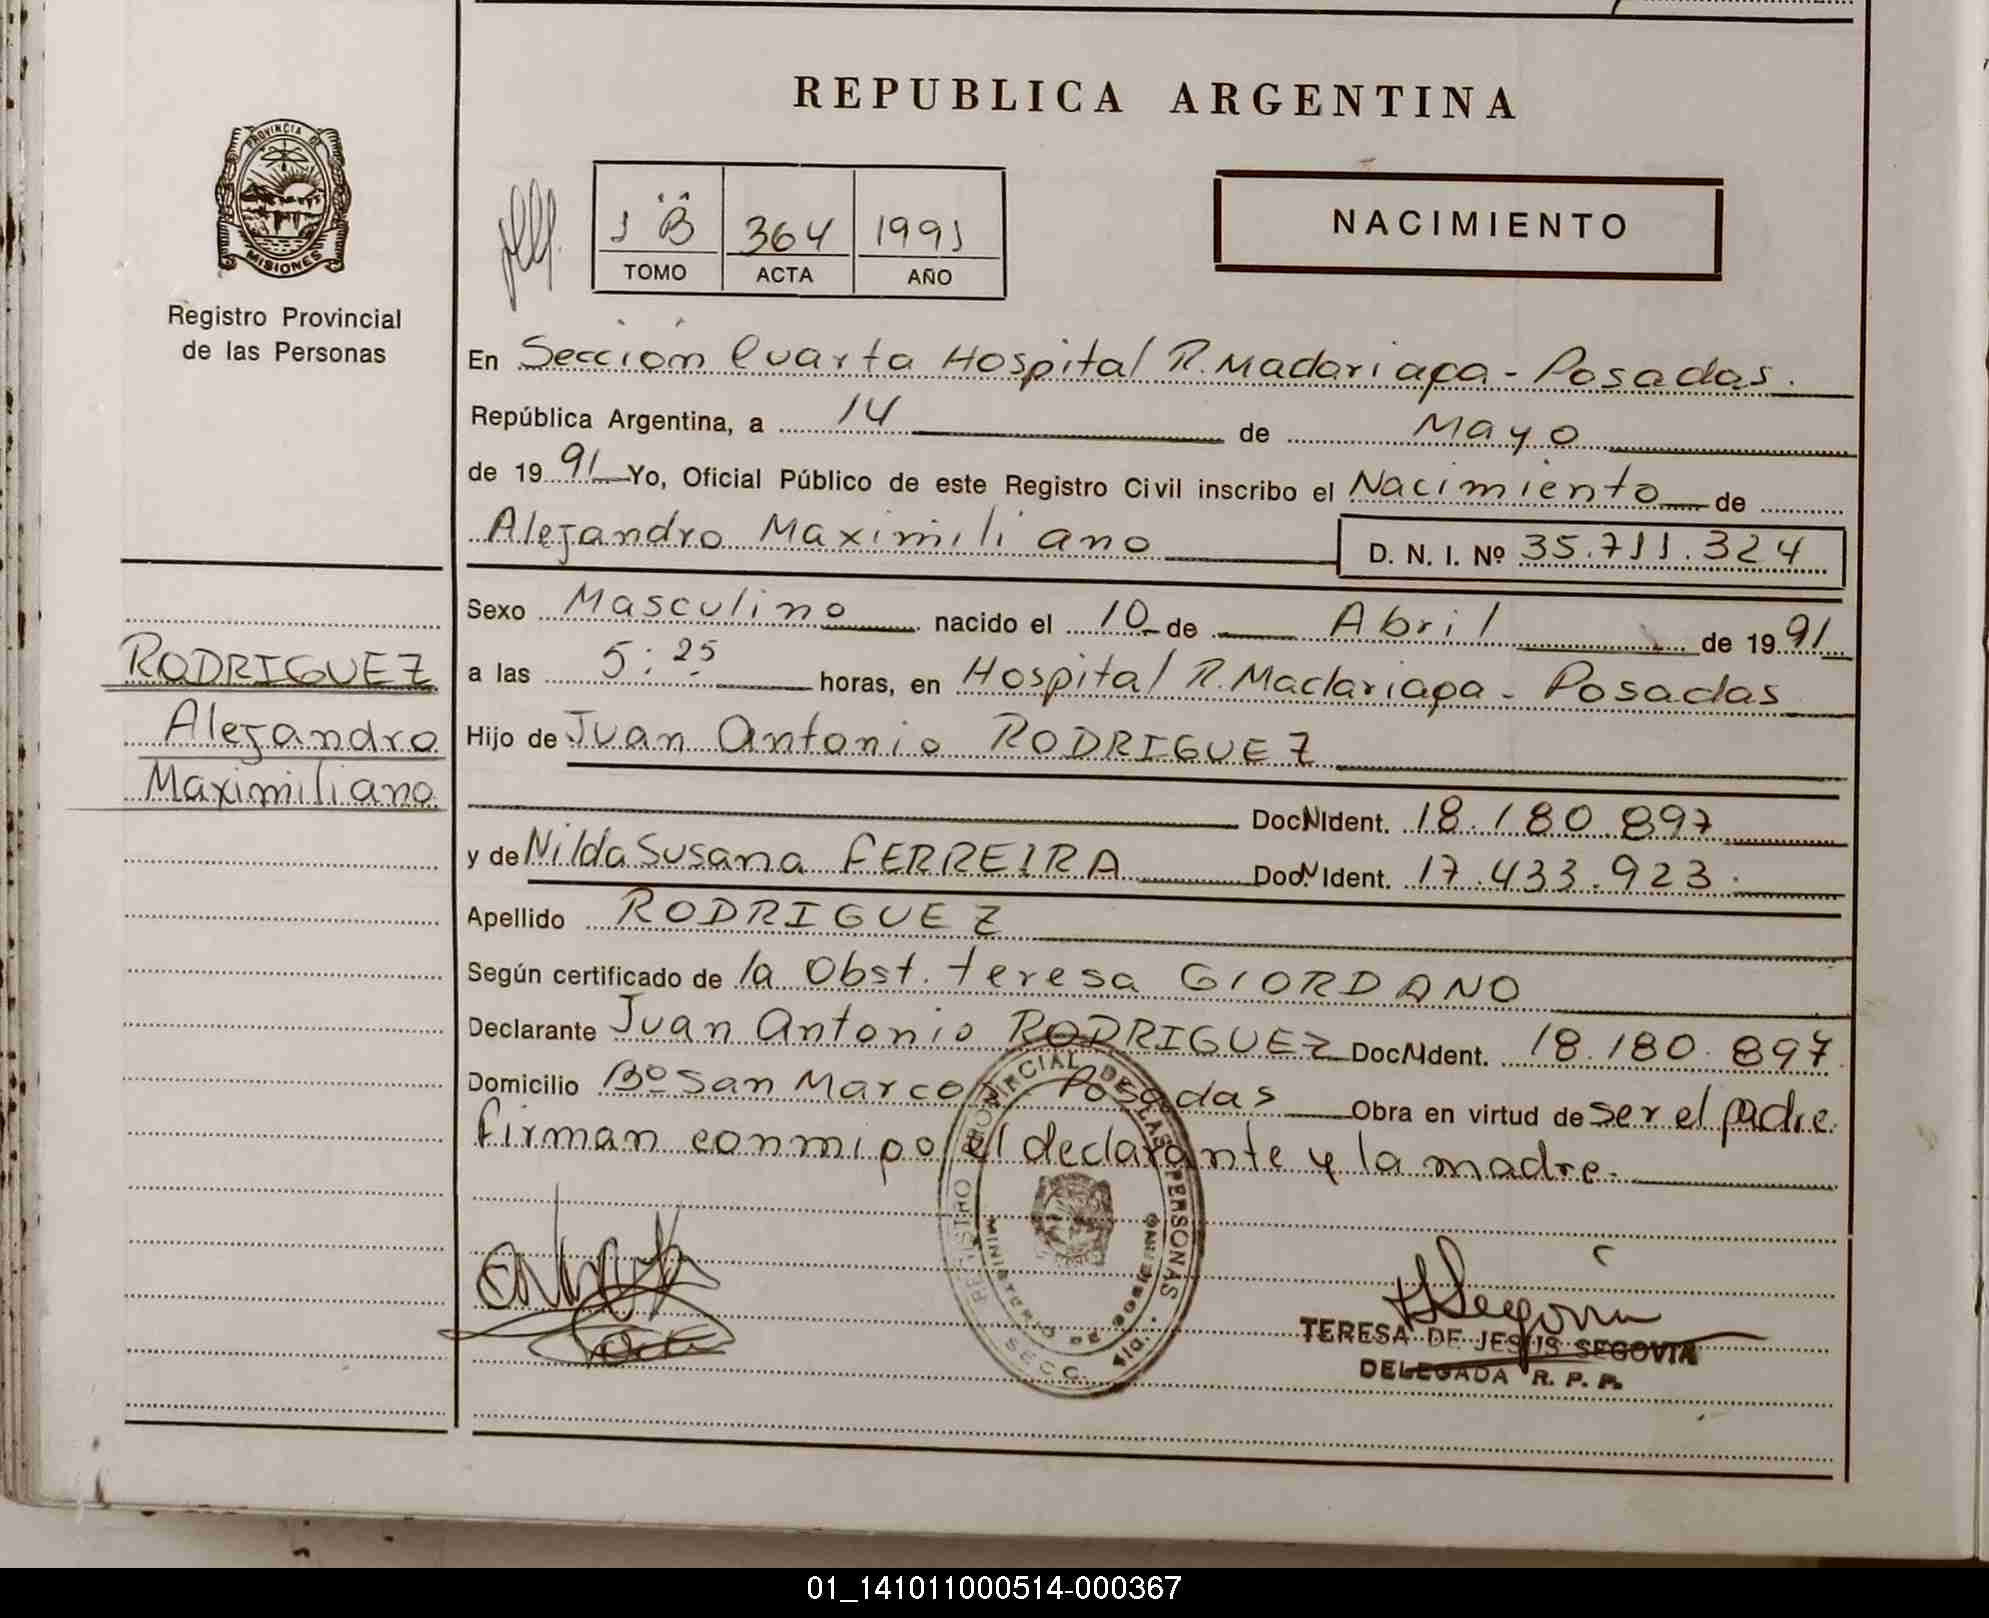 REPUBLICA ARGENTINA
PROVINCIA DE
MISIONES
Registro Provincial
de las Personas
1 "B" 364 1991
TOMO ACTA AÑO
NACIMIENTO
En Sección Cuarta Hospital R. Madariaga - Posadas.
República Argentina, a 14 de Mayo
de 1991 Yo, Oficial Público de este Registro Civil inscribo el Nacimiento de
Alejandro Maximiliano D. N. I. Nº 35.711.324
Sexo Masculino nacido el 10 de Abril de 1991
a las 5:25 horas, en Hospital R. Madariaga - Posadas
RODRIGUEZ
Alejandro
Maximiliano
Hijo de Juan Antonio RODRIGUEZ
Doc.N.Ident. 18.180.897
y de Nilda Susana FERREIRA Doc.N.Ident. 17.433.923.
Apellido RODRIGUEZ
Según certificado de la Obst. Teresa GIORDANO
Declarante Juan Antonio RODRIGUEZ Doc.N.Ident. 18.180.897
Domicilio Bº San Marcos Posadas Obra en virtud de ser el padre.
Firman conmigo el declarante y la madre.
REGISTRO PROVINCIAL DE LAS PERSONAS
MINISTERIO DE GOBIERNO
SECC. 4ta.
TERESA DE JESUS SEGOVIA
DELEGADA R. P. P.
01_141011000514-000367